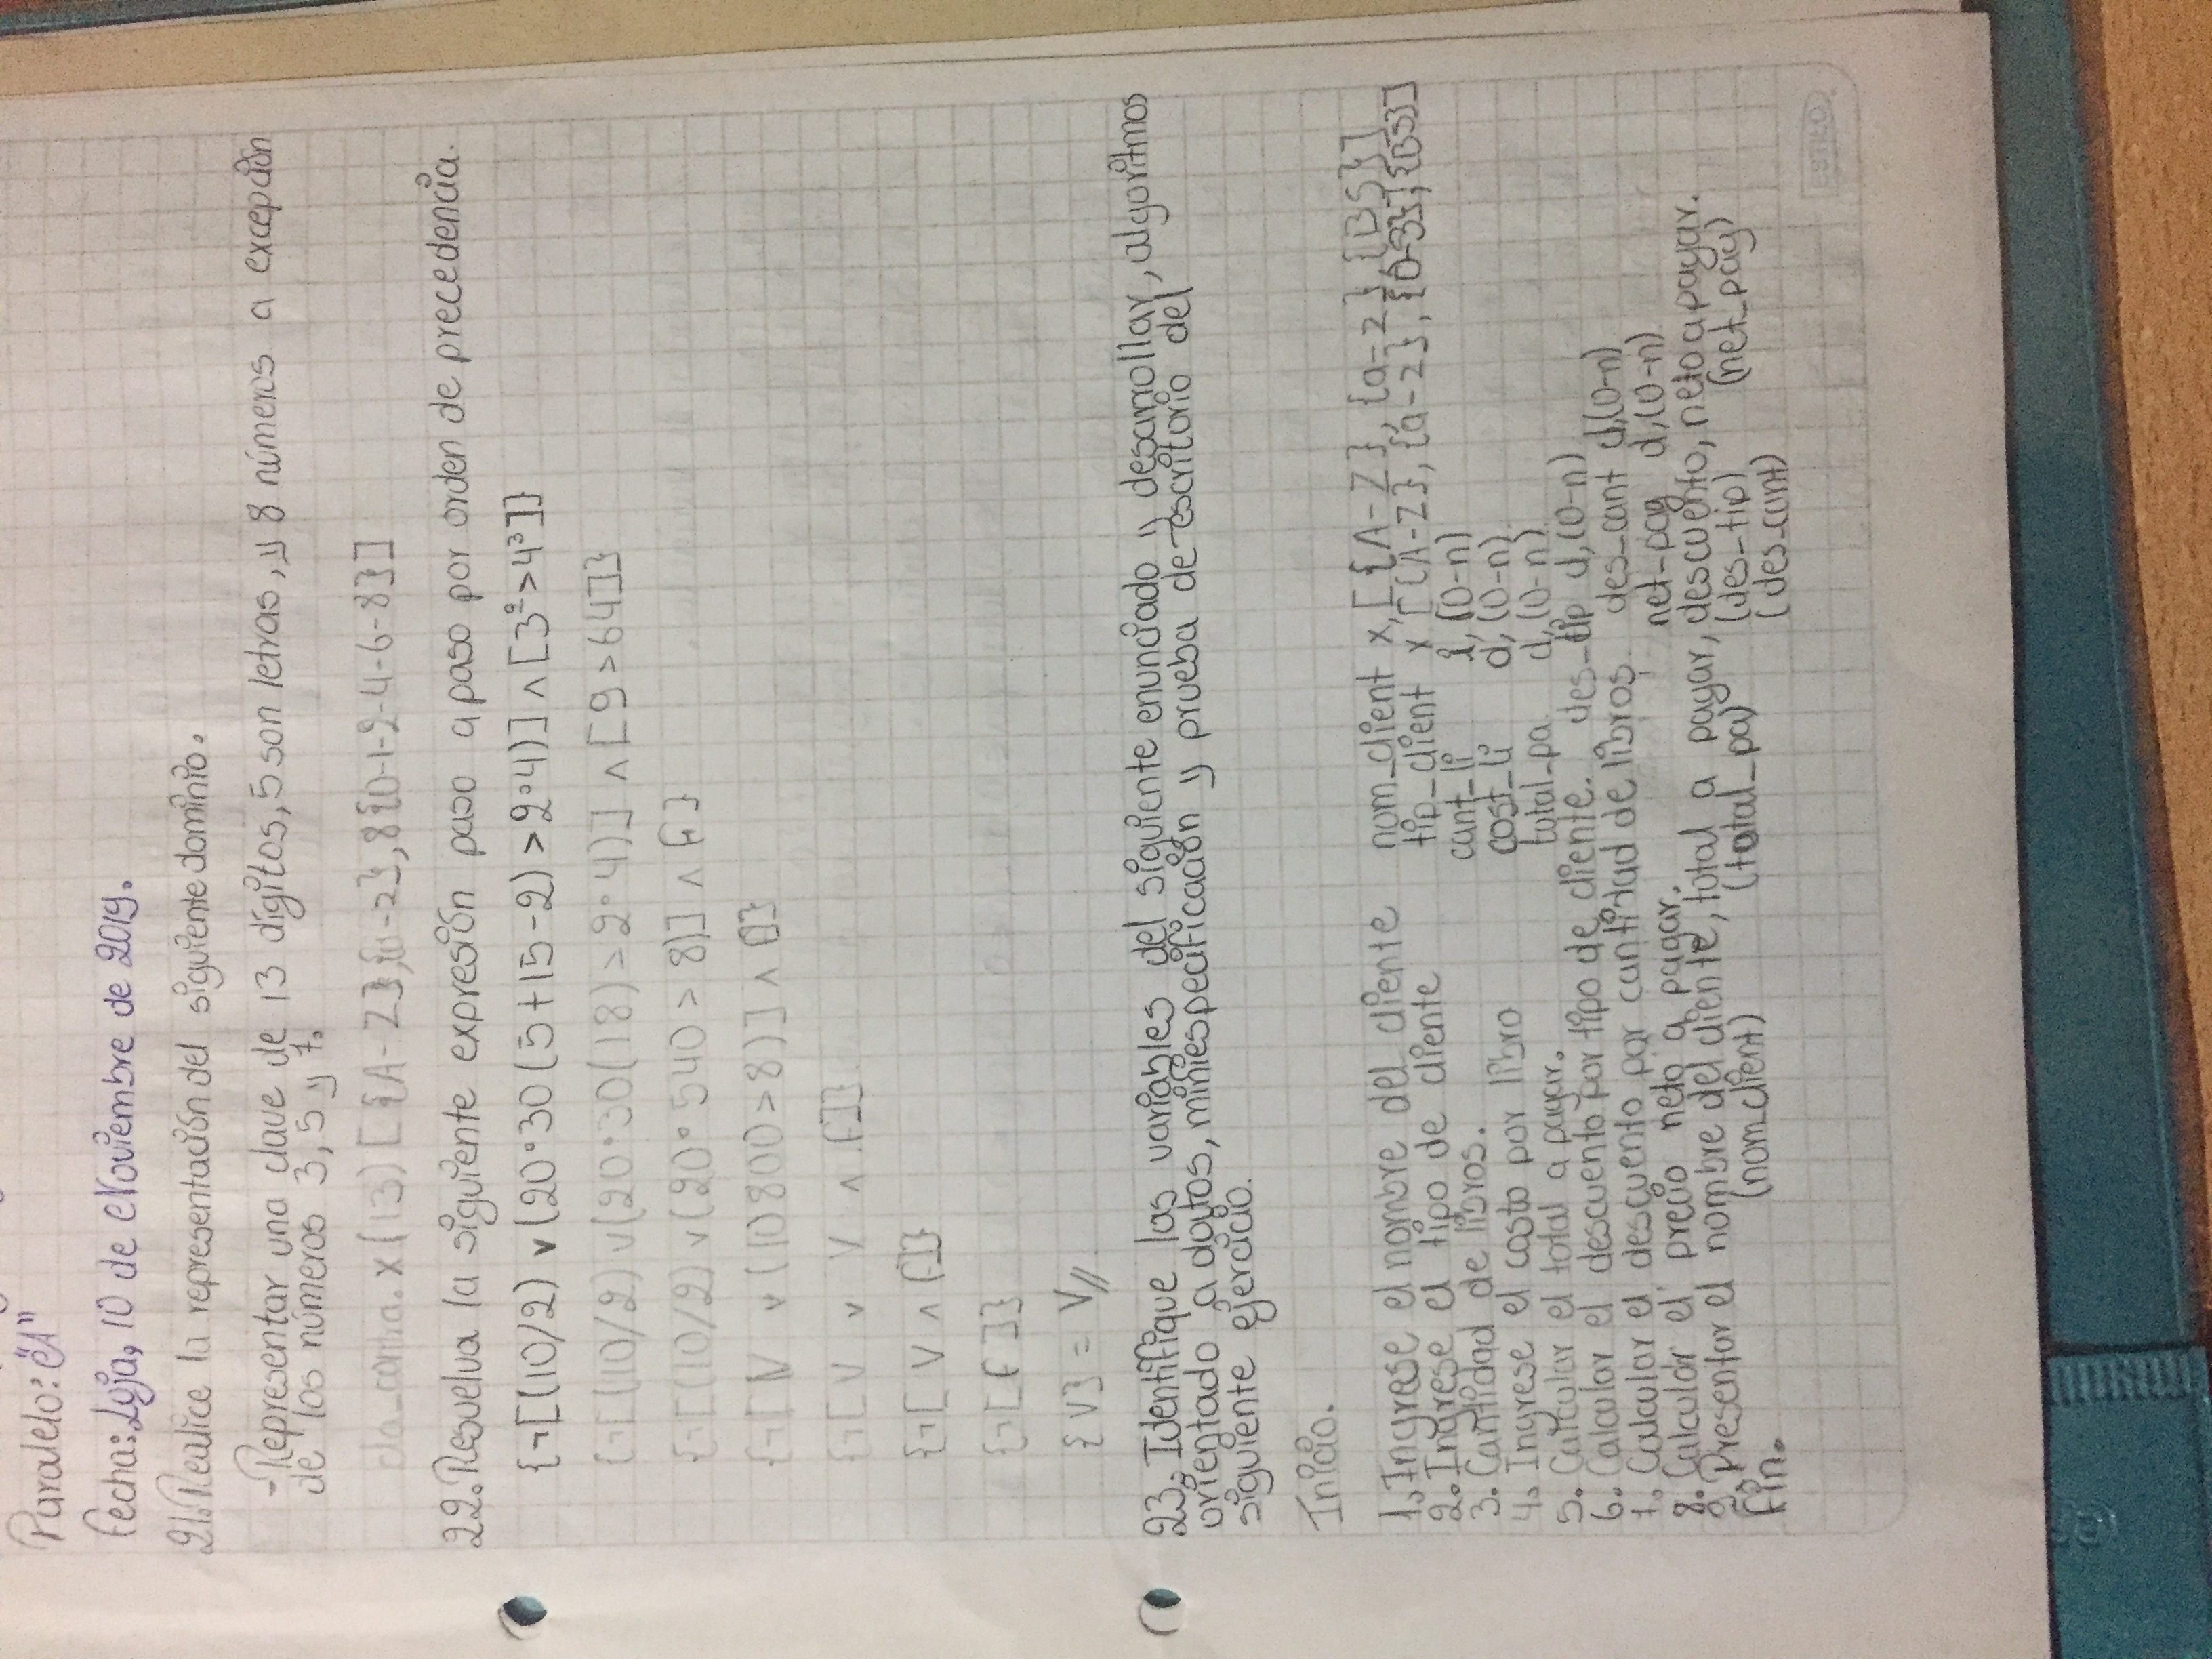 Paralelo: "A"
Fecha: Loja, 10 de Noviembre de 2019.
21. Realice la representación del siguiente dominio.
- Representar una clave de 13 dígitos, 5 son letras, y 8 números a excepción
de los números 3, 5 y 7.
x (13) [ {A-Z}, {a-z}, 8{0-1-2-4-6-8}]
22. Resuelva la siguiente expresión paso a paso por orden de precedencia.
{¬[(10/2) v (20•30(5+15-2) > 2•4)] ∧ [3²>4³]}
{¬[(10/2) v (20•30(18) > 2•4)] ∧ [9>64]}
{¬[(10/2) v (20•540 > 8)] ∧ F}
{¬[ N v (10800>8)] ∧ }
{¬[ V v V ∧ F]}
{¬[ V ∧ F]}
{¬[ F ]}
{V} = V//
23. Identifique las variables del siguiente enunciado y desarrollar, algoritmos
orientado a datos, miniespecificación y prueba de escritorio del
siguiente ejercicio.
Inicio.
1. Ingrese el nombre del cliente nom_client x, [{A-Z}, {a-z}, {BS}]
2. Ingrese el tipo de cliente tip_client x [{A-Z}, {a-z}, {0-3}, {BS}]
3. Cantidad de libros. cant_li i, (0-n)
4. Ingrese el costo por libro cost_li d, (0-n)
5. Calcular el total a pagar. total_pa d, (0-n)
6. Calcular el descuento por tipo de cliente. des_tip d, (0-n)
7. Calcular el descuento por cantidad de libros des_cant d, (0-n)
8. Calcular el precio neto a pagar. net_pag d, (0-n)
9. Presentar el nombre del cliente, total a pagar, descuento, neto a pagar.
Fin. (nom_client) (total_pa) (des_tip) (net_pag)
(des_cant)
ESTILO